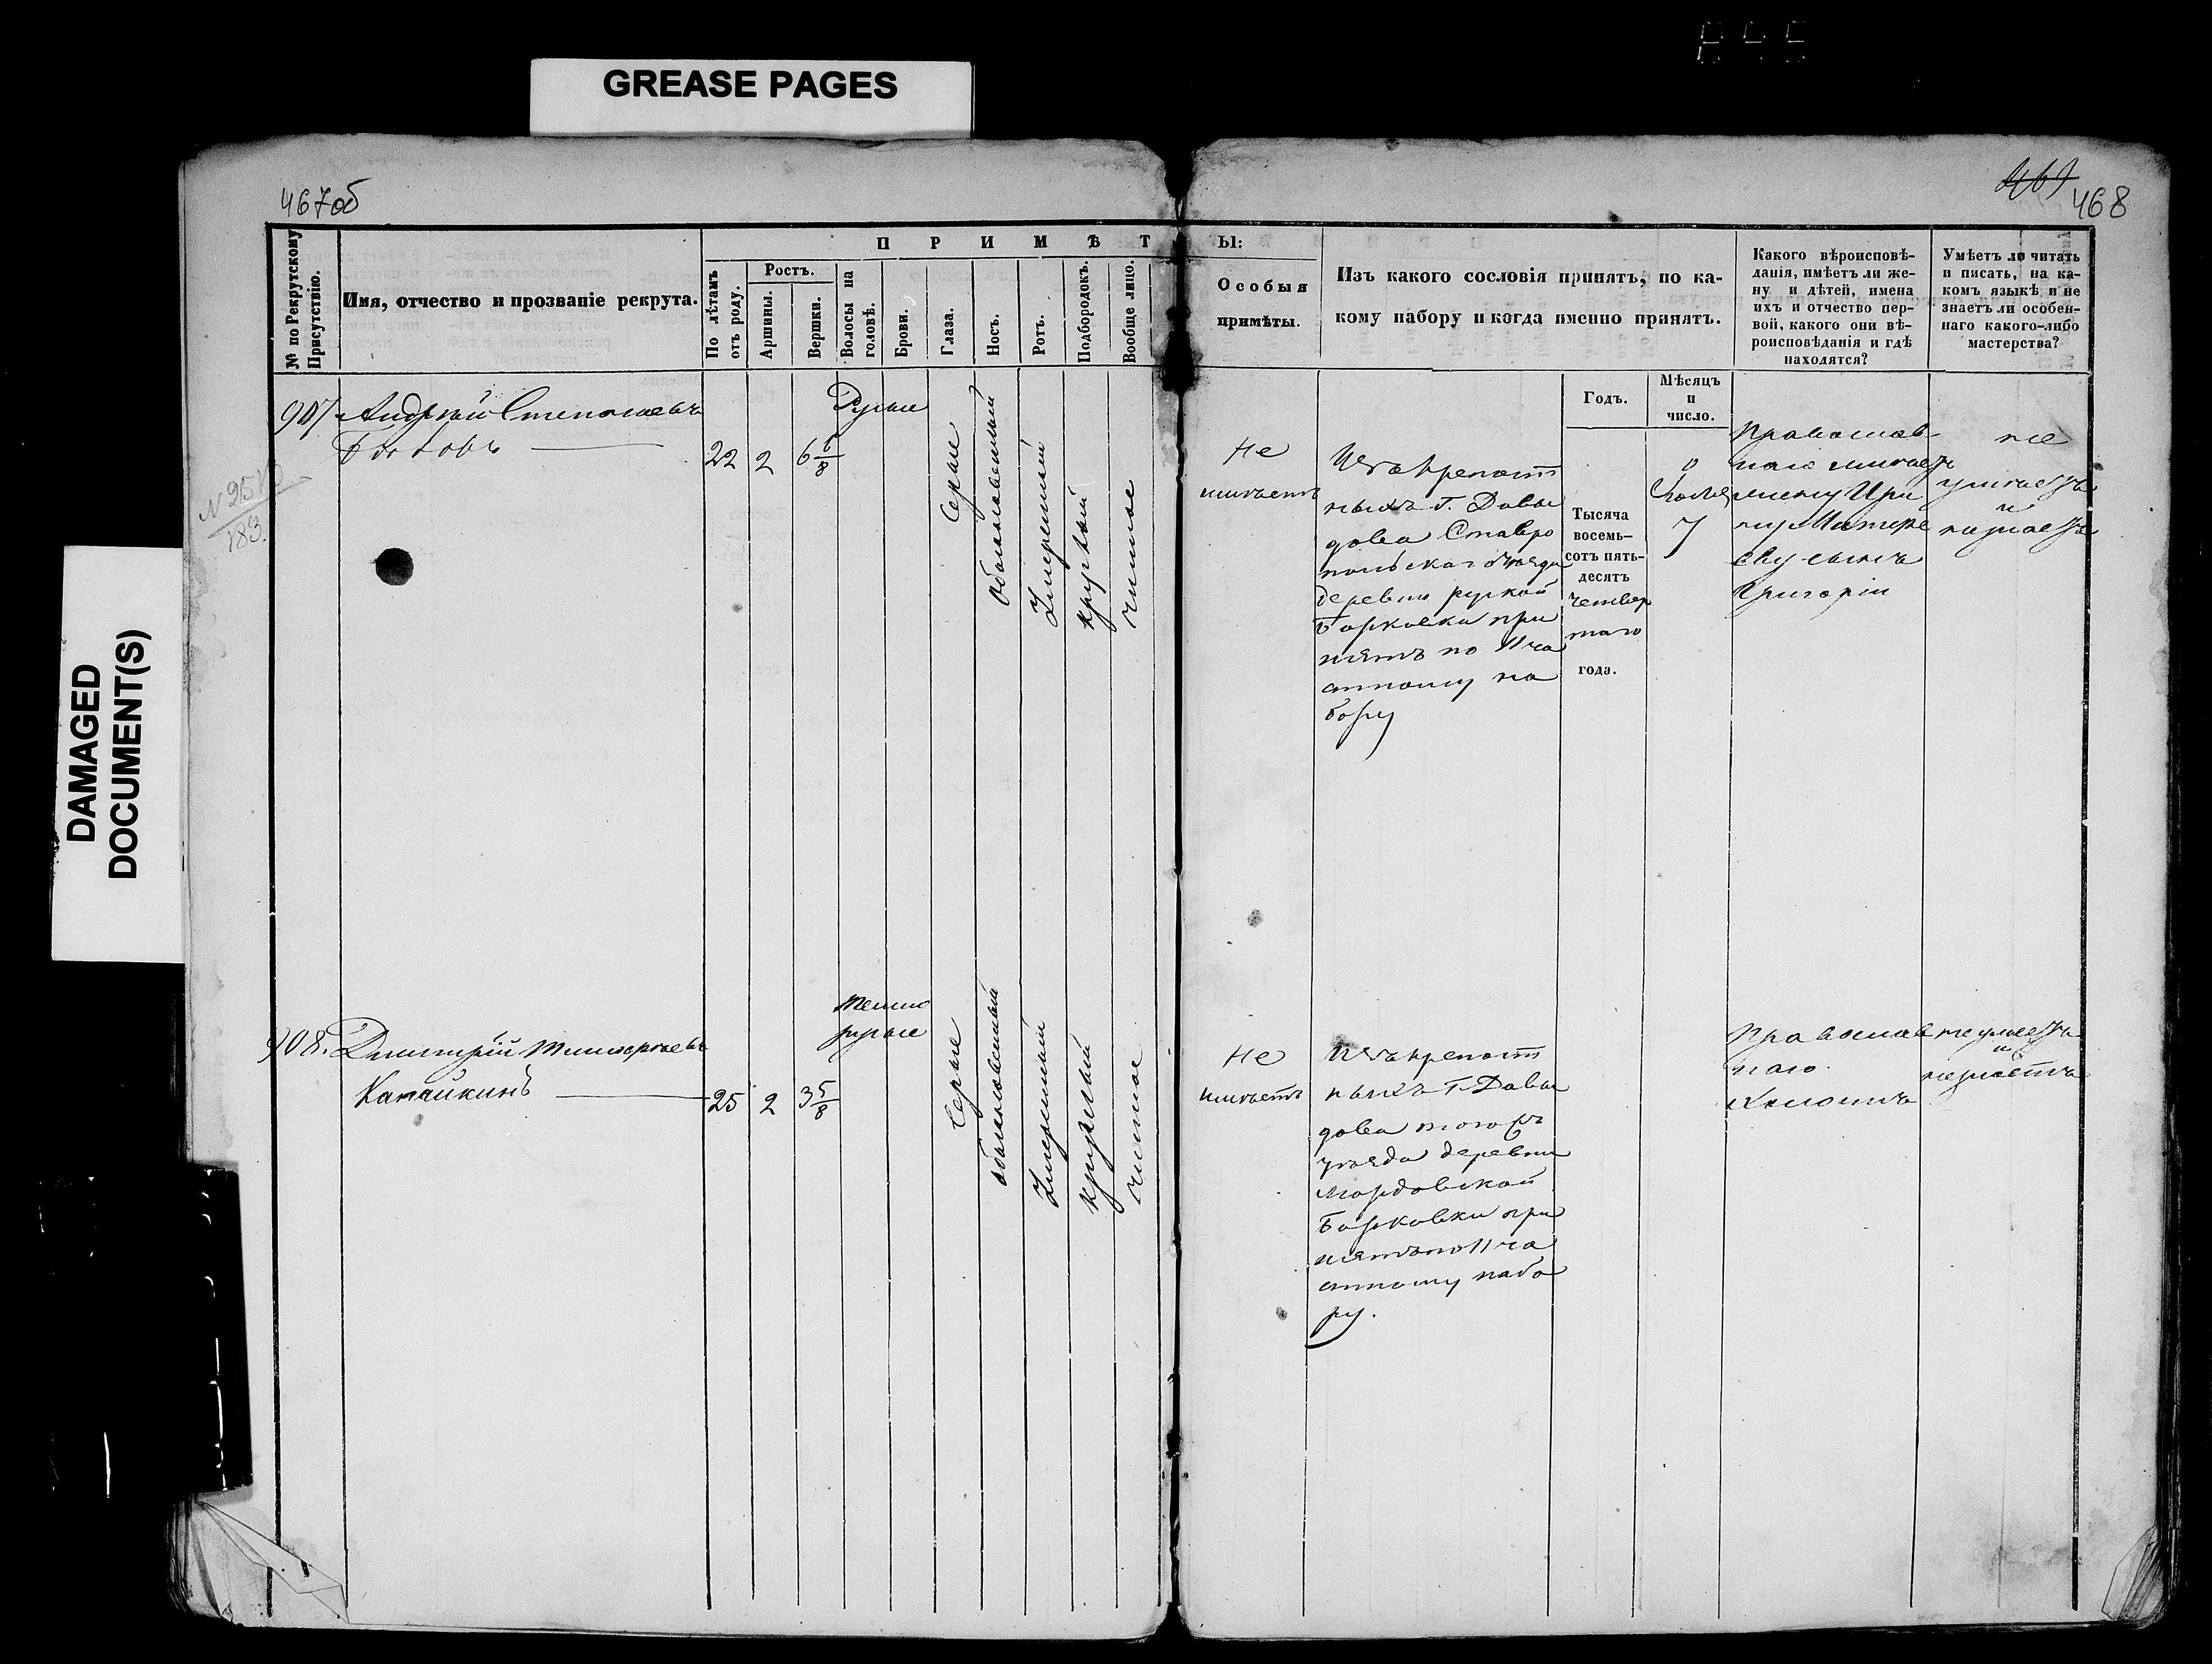 GREASE PAGES
DAMAGED
DOCUMENT(S)
467об
468
№ по Рекрутскому Присутствію.
Имя, отчество и прозваніе рекрута.
П Р И М Ѣ Т Ы:
По лѣтамъ отъ роду.
Ростъ.
Аршины.
Вершки.
Волосы на головѣ.
Брови.
Глаза.
Носъ.
Ротъ.
Подбородокъ.
Вообще лицо.
Особыя
примѣты.
Изъ какого сословія принятъ, по ка-
кому набору и когда именно принятъ.
Какого вѣроисповѣ-
данія, имѣетъ ли же-
ну и дѣтей, имена
ихъ и отчество пер-
вой, какого они вѣ-
роисповѣданія и гдѣ
находятся?
Умѣетъ ли читать
и писать, на ка-
комъ языкѣ и не
знаетъ ли особен-
наго какого-либо
мастерства?
Годъ.
Мѣсяцъ
и
число.
907
Андрей Степановъ
22
2
6 6/8
Русые
Серые
обыкновенный
Умеренный
круглый
чистое
Не
имѣетъ
Изъ крепост
ныхъ Г. Давы
дова Ставро
польскаго уѣзда
деревни руской
Борковки при
нятъ по 11 ча
стному на
бору
Тысяча
восемь-
сотъ пять-
десятъ
четвер
таго
года.
7
Православ
наго имѣетъ
жену Ири
ну Матве
еву сына
Григорія
не
умѣетъ
и
незнаетъ
908.
Дмитрій
25
2
3 5/8
Темно
русые
Серые
обыкновенный
Умеренный
круглый
чистое
Не
имѣетъ
Изъ крепост
ныхъ Г. Давы
дова тогожъ
уѣзда деревни
Мордовской
Борковки при
нятъ по 11 ча
стному набо
ру.
Православ
наго.
Холостъ
неумеетъ
и
незнаетъ